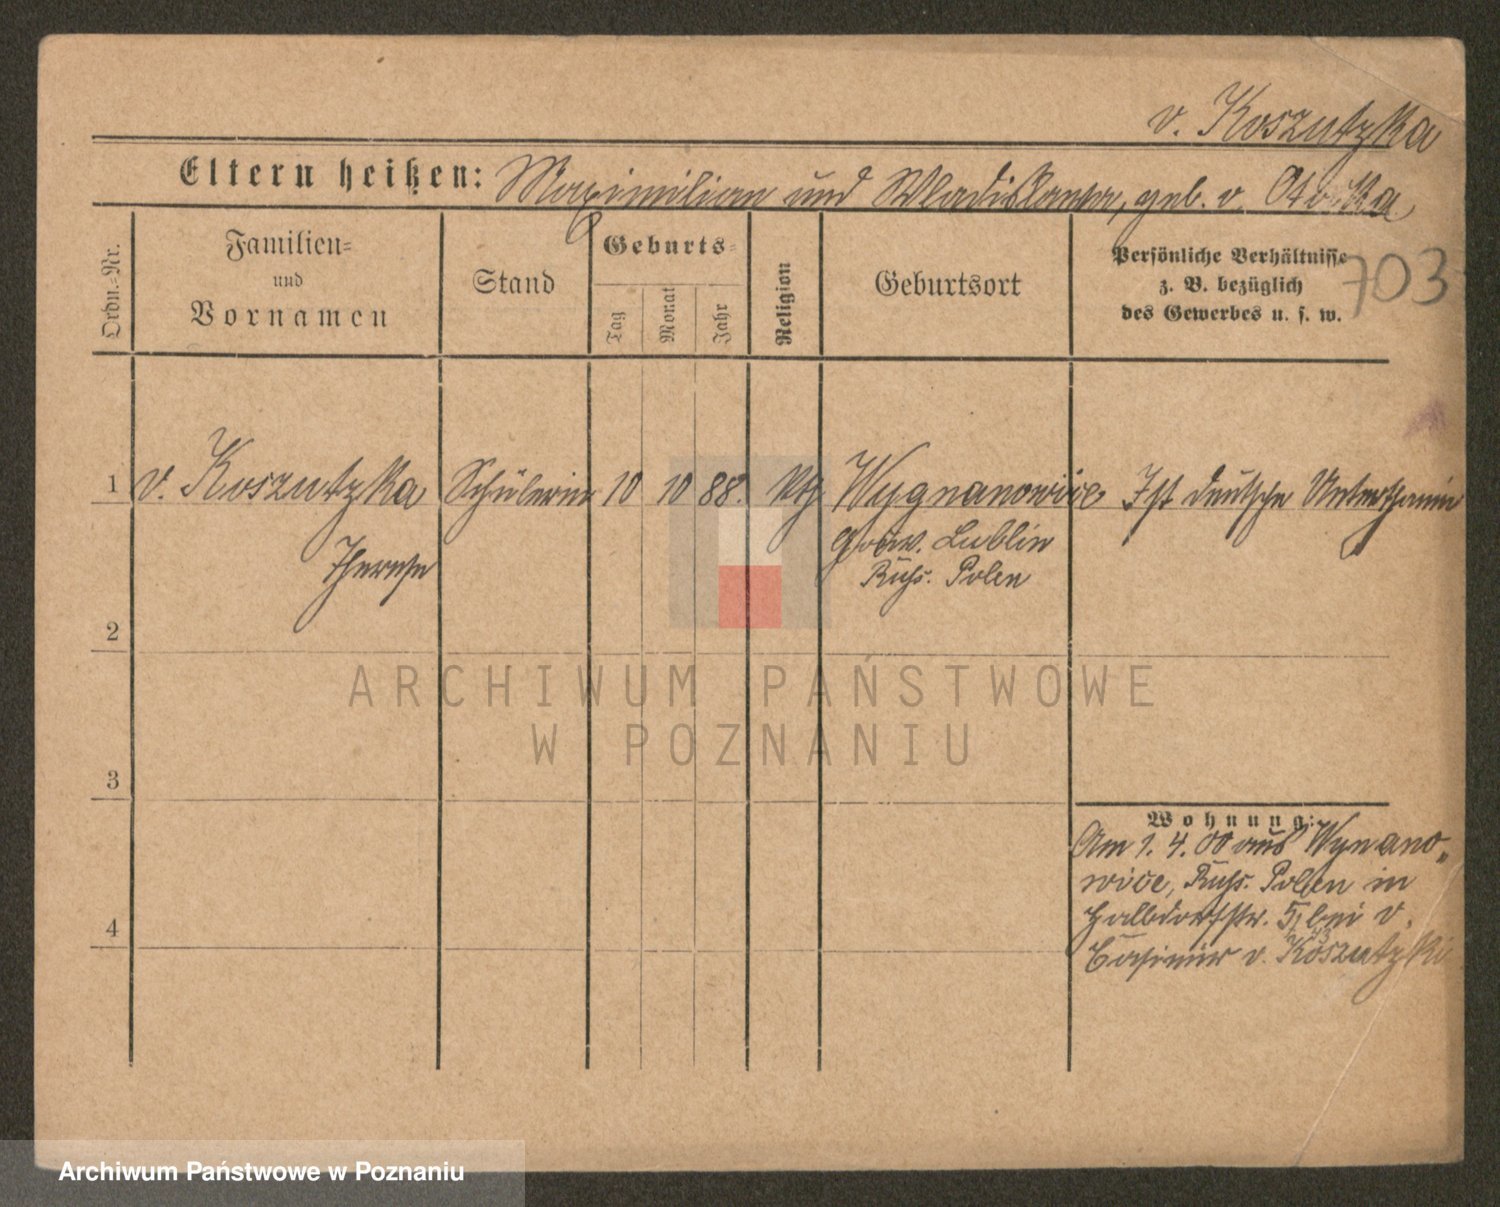 v. Koszutzka
Eltern heißen: Maximilian und Wladislawa, geb. v.
Ordn.-Nr.
Familien-
und
Vornamen
Stand
Geburts-
Tag
Monat
Jahr
Religion
Geburtsort
Persönliche Verhältnisse
z. B. bezüglich
des Gewerbes u. s. w.
703
1 v. Koszutzka Schülerin 10 10 88. Wygnanowice Ist deutsche Unterthanin
Therese
Gouv. Lublin
Russ. Polen
2
3
4
Wohnung:
Am 1. 4. 00 aus Wynano-
wice, Russ. Polen in
Halbdorfstr. 5, bei v.
Casimir v. Koszutzki
ARCHIWUM PAŃSTWOWE
W POZNANIU
Archiwum Państwowe w Poznaniu